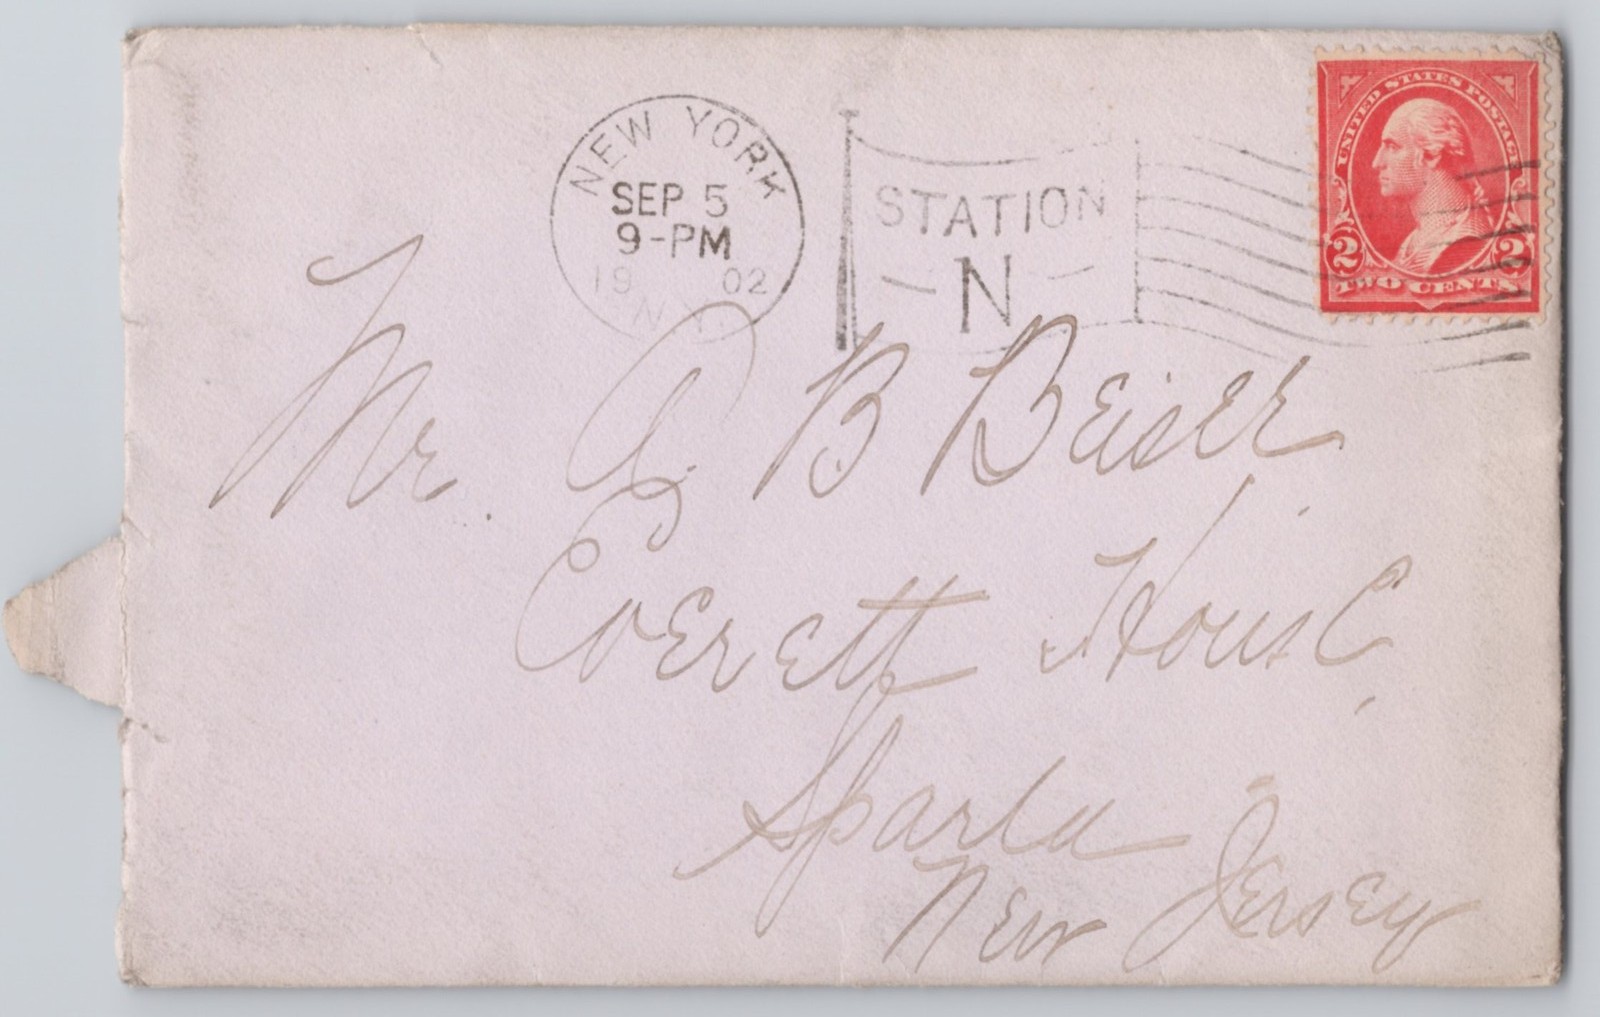 NEW YORK
SEP 5
9-PM
19 02
N.Y.
STATION
N
UNITED STATES POSTAGE
2 2
TWO CENTS
Mr. A. B. Beiser
Everett House,
Sparta
New Jersey